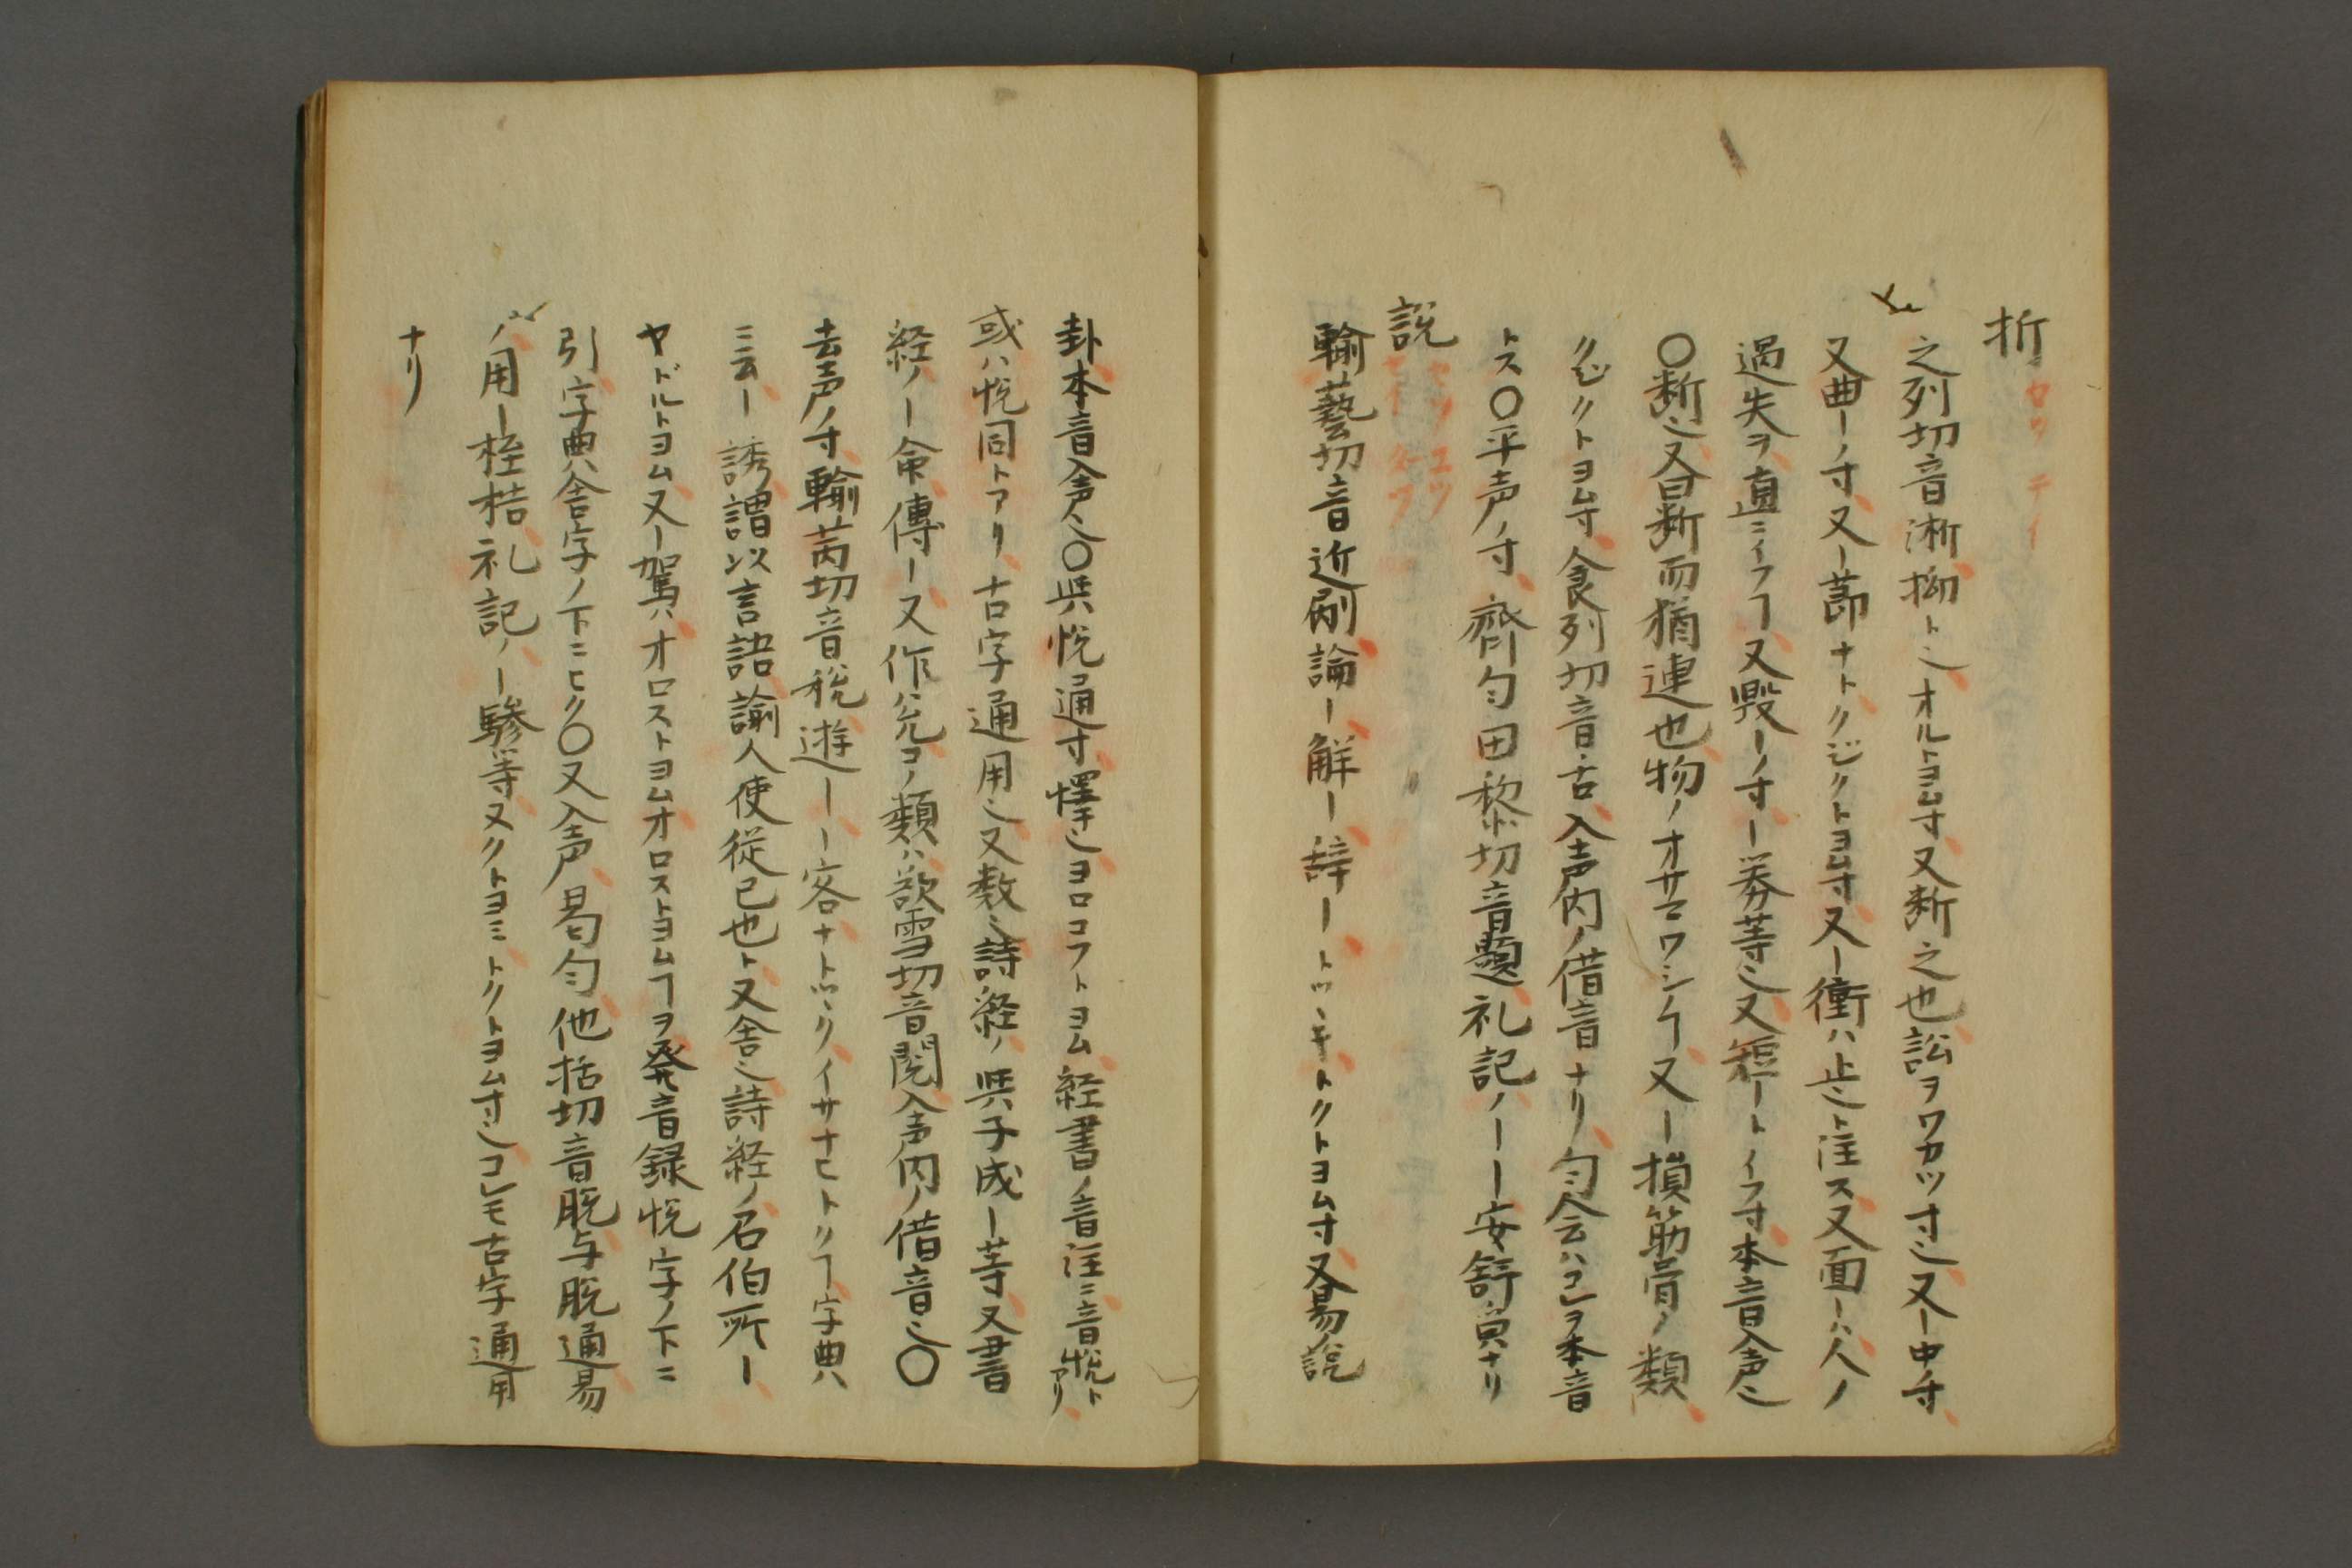 折 セツ テイ
之列切音淅拗トヽオルトヨム寸又断之也訟ヲワカツ寸ヽ又ー中ノ寸
又曲ーノ寸又ー節ナトクジクトヨム寸又ー衝ハ止ヽト注ス又面ーハ人ノ
過失ヲ直ニイフヿ又毀ーノ寸ー券等ヽ又短ートイフ寸本音入声ヽ
〇断ヽ又曰断而猶連也物ノオサマワシクヿ又ー損筋骨ノ類
クジクトヨム寸食列切音舌入声内ノ借音ナリ匀会ハコレヲ本音
トス〇平声ノ寸齊匀田黎切音題礼記ノーー安舒皃ナリ
説 セツ エツ セイ タツ
輸藝切音近刷論ー解ー辞ートツヾキトクトヨム寸又易ノ説
卦本音入声ヽ〇與悦通寸懌ヽヨロコフトヨム経書ノ音注ニ音悦トアリ
或ハ悦同トアリ古字通用ヽ又数ヽ詩経ノ與子成ー等又書
経ノー命傳ー又作兊ヨノ類ハ欲雪切音閲入声内ノ借音ヽ〇
去声ノ寸輸芮切音税遊ーー客ナトツヾクイサナヒトクヿ字典ハ
ニ云ー誘謂以言語諭人使從己也ト又舎ヽ詩経ノ召伯所ー
ヤドルトヨム又ー駕ハオロストヨムオロストヨムヿヲ発音録悦字ノ下ニ
引字典ハ舎字ノ下ニヒク〇又入声曷匀他括切音脱与脱通易
ノ用ー桎梏礼記ノー驂等又クトヨミトクトヨム寸ヽコレモ古字通用
ナリ